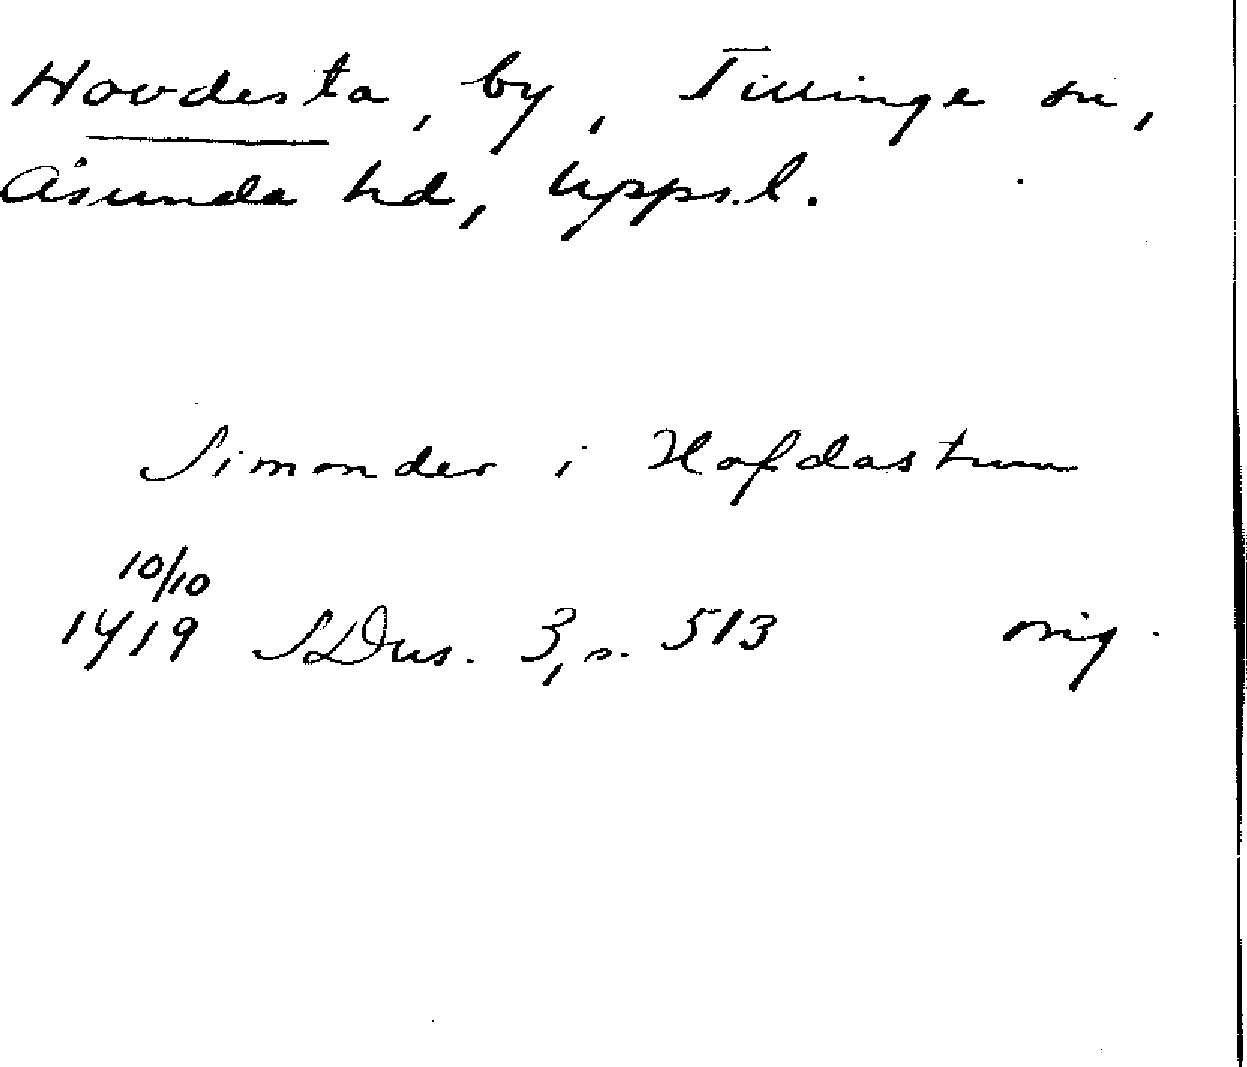 Hovdesta, by, Tillinge sn,
Åsunda hd, Upps.l.
Simonder i Hofdastum
10/10
1419 SDns. 3, s. 513 orig.